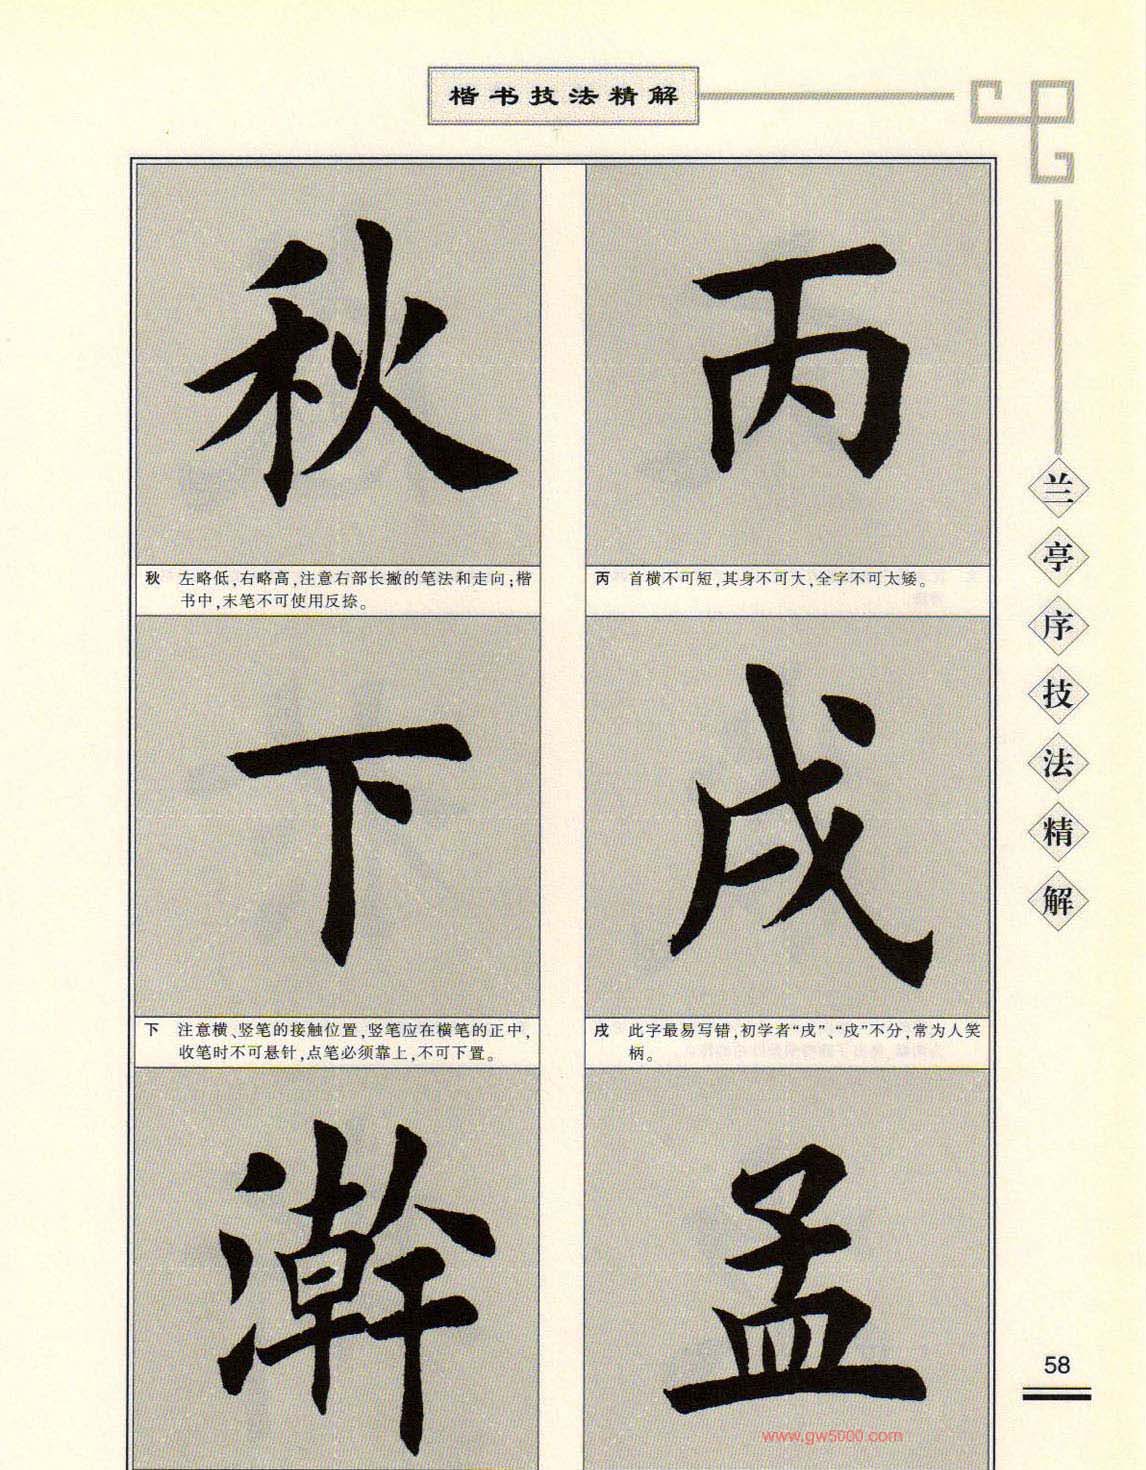 楷书技法精解
秋
丙
秋 左略低,右略高,注意右部长撇的笔法和走向;楷
书中,末笔不可使用反捺。
丙 首横不可短,其身不可大,全字不可太矮。
下
戌
下 注意横、竖笔的接触位置,竖笔应在横笔的正中,
收笔时不可悬针,点笔必须靠上,不可下置。
戌 此字最易写错,初学者“戌”、“戍”不分,常为人笑
柄。
澣
孟
兰亭序技法精解
58
www.gw5000.com